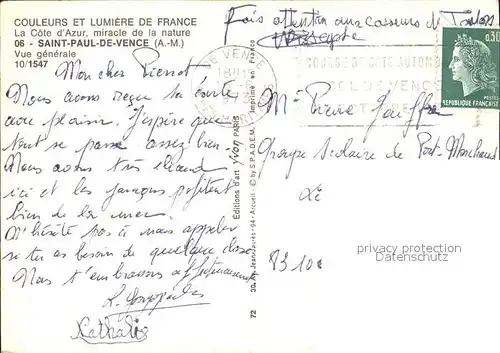 COULEURS ET LUMIÈRE DE FRANCE
La Côte d'Azur, miracle de la nature
06 - SAINT-PAUL-DE-VENCE (A.-M.)
Vue générale
10/1547
Fais attention aux casseurs de Toulon
Mon cher Pierrot
Nous avons reçu ta carte
avec plaisir. J'espère que
tout se passe assez bien.
Nous avons très chaud
ici et les garçons profitent
bien de la mer.
N'hésite pas à nous appeler
si tu as besoin de quelque chose
Nous t'embrassons affectueusement
Nathalie
Éditions d'art yvon PARIS
30, Av. Jean-Jaurès - 94 - Arcueil - © by S.P.A.D.E.M. Imprimé en France
72
DE VENCE
COURSE DE COTE AUTOMOB
COL DE VENCE
0,30
POSTES
RÉPUBLIQUE FRANÇAISE
Mr Pierre
Groupe Scolaire de Pont-Marchand
83100
profihansa.de
Datenschutz